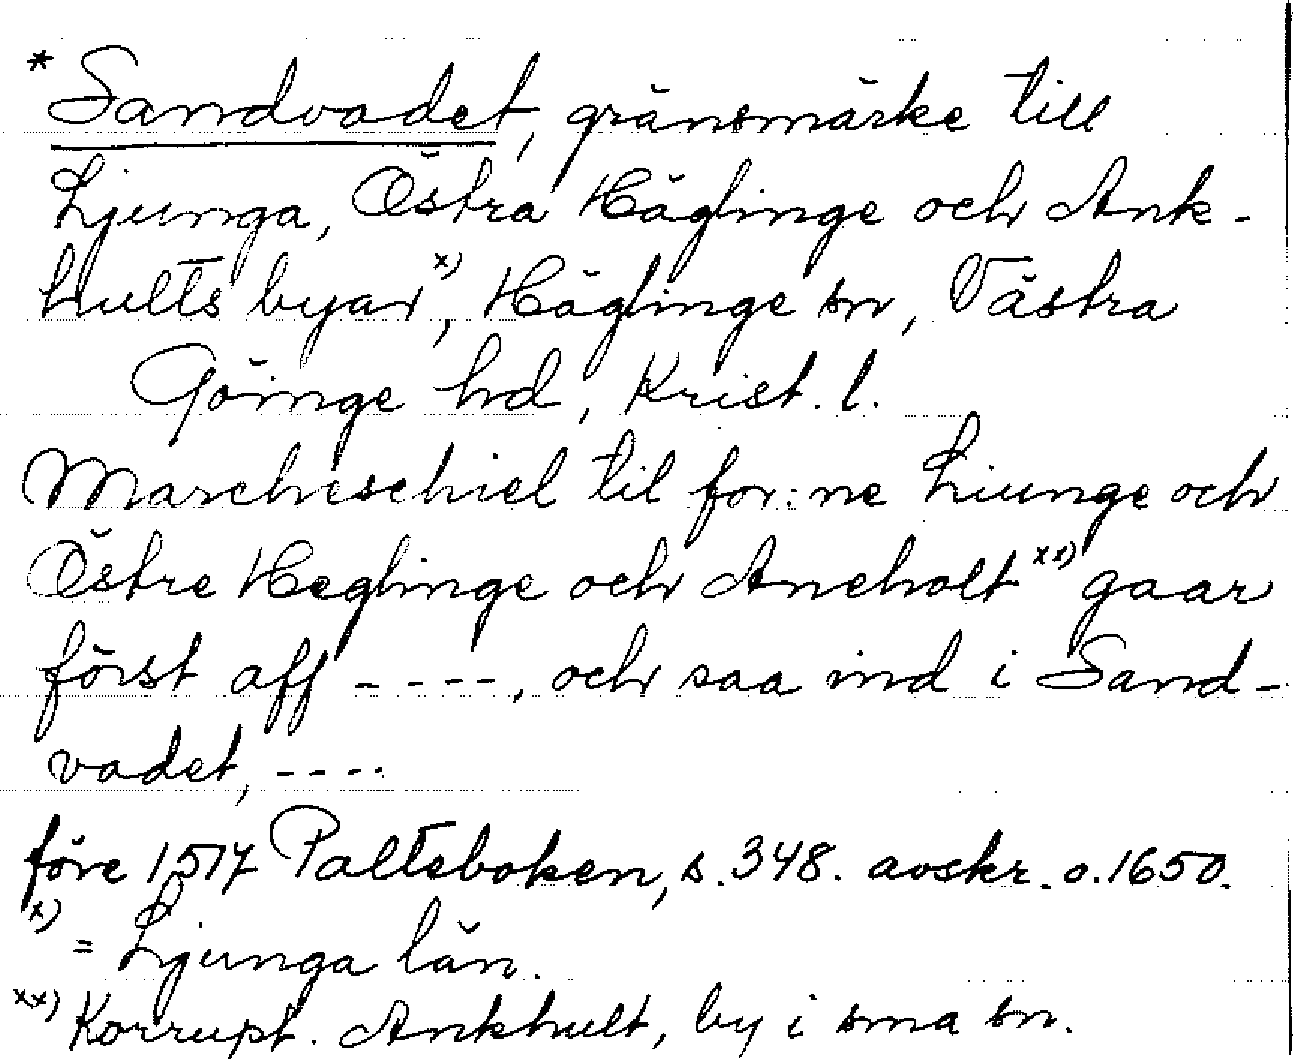 * Sandvadet, gränsmärke till
Ljunga, Östra Häglinge och Ank-
hults byar x), Häglinge sn, Västra
Göinge hd, Krist. l.
Marcheschiel til for:ne Liunge och
Östre Heglinge och Ancholt xx) gaar
först aff ----, och saa ind i Sand-
vadet, ----
före 1517 Palteboken, s. 348. avskr. o. 1650.
x) = Ljunga län.
xx) Korrupt. Ankhult, by i sma sn.